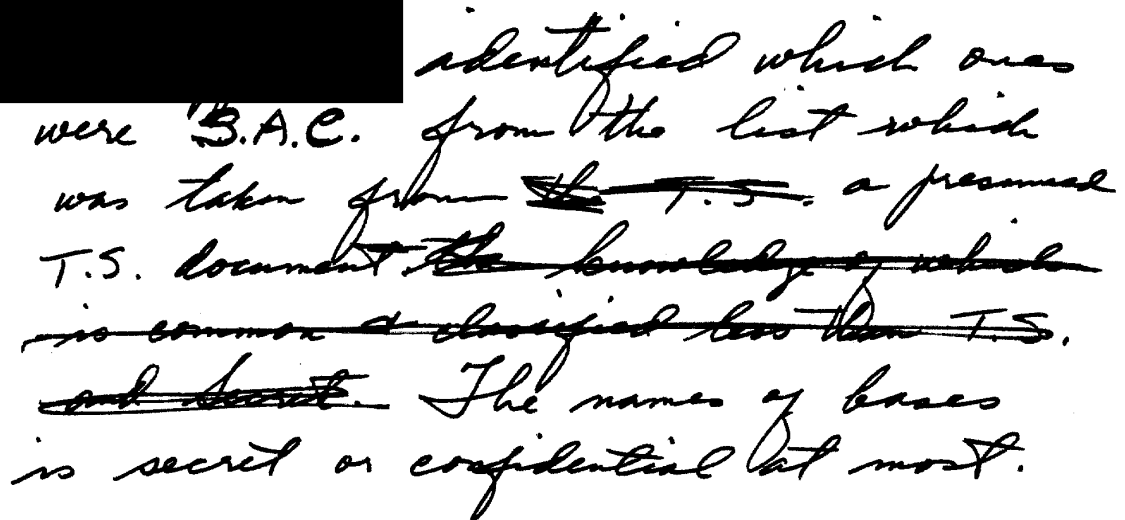 identified which ones
were S.A.C. from the list which
was taken from the T.S. a presumed
T.S. document. the knowledge of which
is common & classified less than T.S.
and Secret. The names of bases
is secret or cosfidential at most.